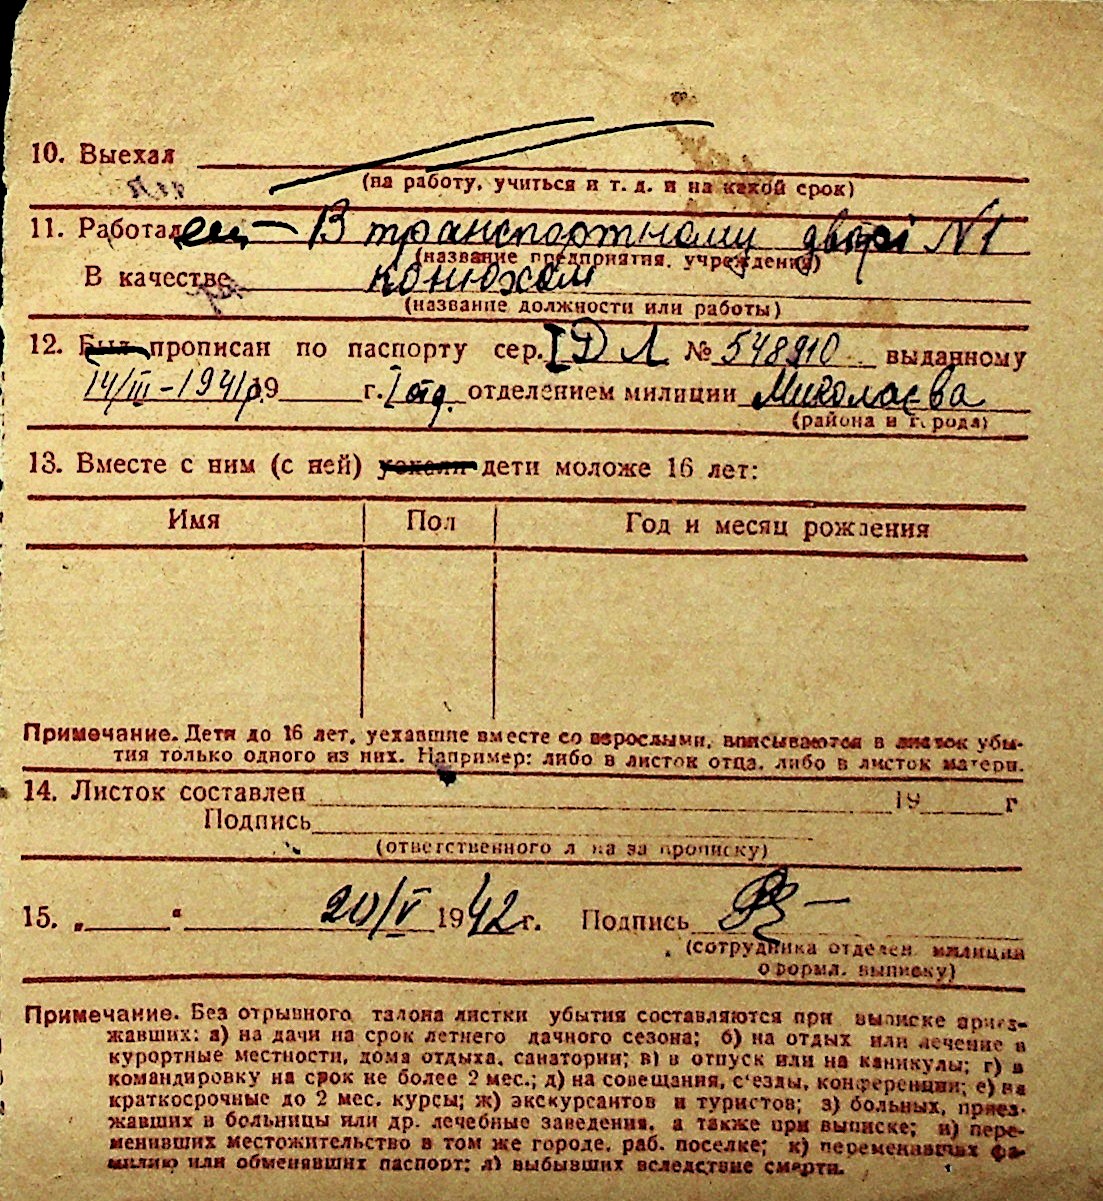 10. Выехал
(на работу, учиться и т. д. и на какой срок)
11. Работал В транспортному дворі №1
(название предприятия, учреждения)
В качестве конюхом
(название должности или работы)
12. Был прописан по паспорту сер. I ДЛ № 548910 выданному
14/III-1941р. 19 г. I отд. отделением милиции Миколаєва
(района и города)
13. Вместе с ним (с ней) уехали дети моложе 16 лет:
Имя Пол Год и месяц рождения
Примечание. Дети до 16 лет, уехавшие вместе со взрослыми, вписываются в листок убы-
тия только одного из них. Например: либо в листок отца, либо в листок матери.
14. Листок составлен 19 г
Подпись
(ответственного л на за прописку)
15. „ “ 20/V 1942 г. Подпись
(сотрудника отделен. милиции
оформл. выписку)
Примечание. Без отрывного талона листки убытия составляются при выписке приез-
жавших: а) на дачи на срок летнего дачного сезона; б) на отдых или лечение в
курортные местности, дома отдыха, санатории; в) в отпуск или на каникулы; г) в
командировку на срок не более 2 мес.; д) на совещания, с'езды, конференции; е) на
краткосрочные до 2 мес. курсы; ж) экскурсантов и туристов; з) больных, приез-
жавших в больницы или др. лечебные заведения, а также при выписке; и) пере-
менивших местожительство в том же городе, раб. поселке; к) переменивших фа-
милию или обменявших паспорт; л) выбывших вследствие смерти.